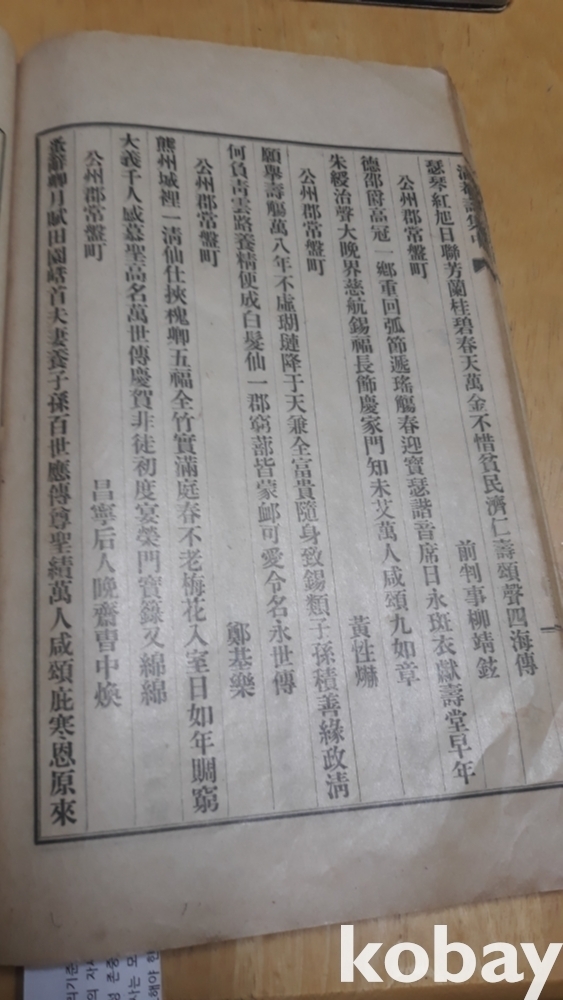 瑟琴紅旭日聯芳蘭桂碧春天萬金不惜貧民濟仁壽頌聲四海傳
公州郡常盤町 前判事柳靖鉉
德邵爵高冠一鄉重回弧節遞瑤觴春迎寶瑟諧音席日永斑衣獻壽堂早年
朱綬治聲大晩界慈航錫福長飾慶家門知未艾萬人咸頌九如章
公州郡常盤町 黃性爀
願擧壽觴萬八年不虛瑚璉降于天兼全富貴隨身致錫類子孫積善緣政淸
何負靑雲路養精便成白髮仙一郡窮蔀皆蒙卹可愛令名永世傳
公州郡常盤町 鄭基樂
熊州城裡一淸仙仕挾槐卿五福全竹實滿庭春不老梅花入室日如年賙窮
大義千人感慕聖高名萬世傳慶賀非徒初度宴榮門寶籙又綿綿
公州郡常盤町 昌寧后人晩齋曺中煥
月賦田園皓首夫妻養子孫百世應傳尊聖績萬人咸頌庇寒恩原來
kobay